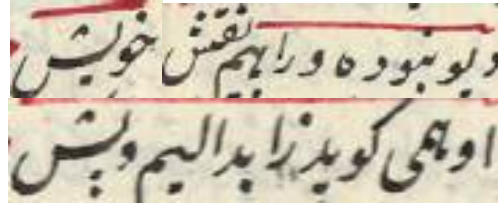 دیو بنوده ورا هم نقش خویش
او همی کوید زابدالیم وپیش